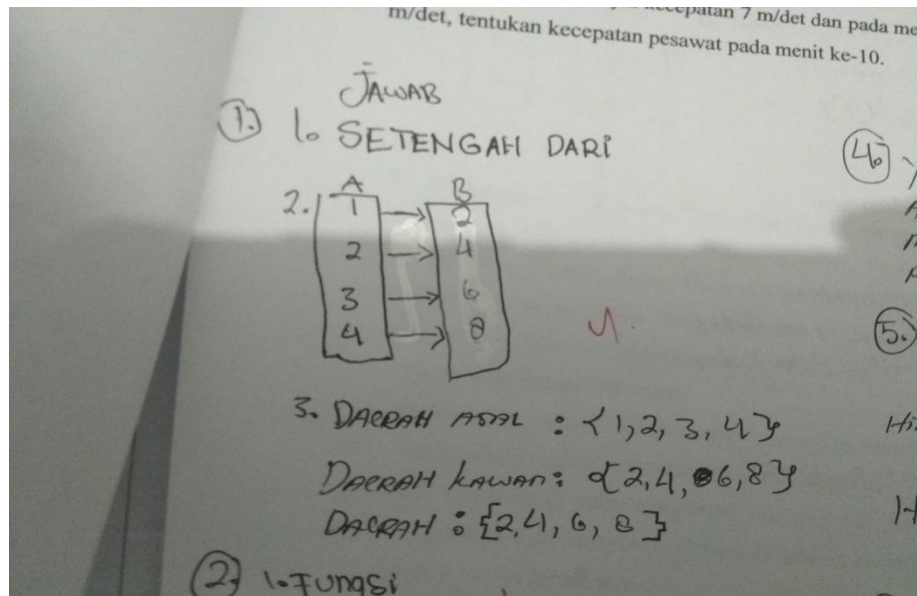 kecepatan 7 m/det dan pada me
m/det, tentukan kecepatan pesawat pada menit ke-10.
JAWAB
1.) 1. SETENGAH DARI
2. A B
1 2
2 4
3 6
4 8
3. DAERAH ASAL : {1, 2, 3, 4}
DAERAH KAWAN : {2, 4, 6, 8}
DAERAH : {2, 4, 6, 8}
2.) 1. FUNGSI
4.)
5.)
Hi
H